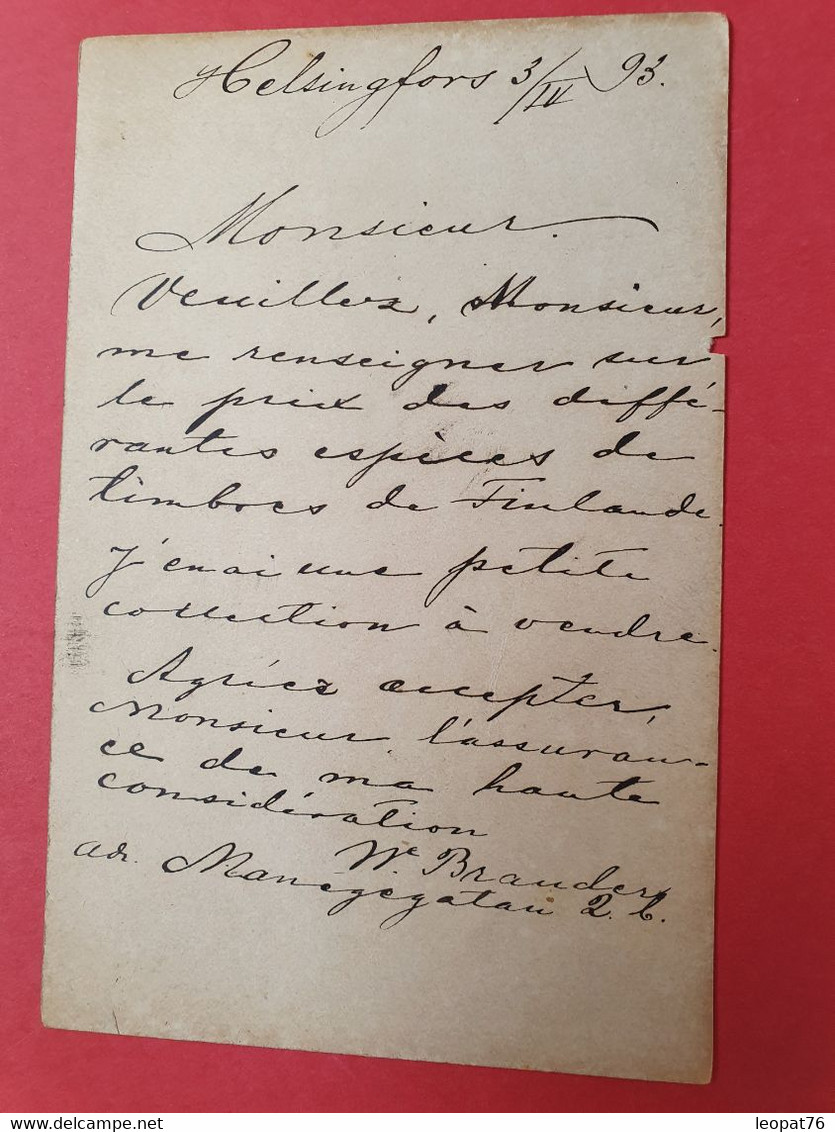 Helsingfors 3/IV 93.
Monsieur.
Veuillez, Monsieur,
me renseigner sur
le prix des diffé-
rantes espèces de
timbres de Finlande.
J'en ai une petite
collection à vendre.
Agriez accepter,
Monsieur, l'assuran-
ce de ma haute
considération
We Brander
adr. Manegegatan 2. b.
www.delcampe.net
leopat76